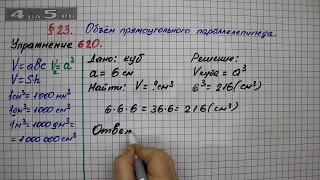 4 да 5.NET
§ 23. Объём прямоугольного параллелепипеда.
Упражнение 620.
V=abc V=a³
V=Sh
1см³=1000 мм³
1дм³=1000 см³
1м³=1000 дм³=
=1000 000 см³
Дано: куб
a = 6 см
Найти: V=?см³
Решение:
Vкуба = a³
6³=216(см³)
6·6·6 = 36·6 = 216(см³)
Ответ